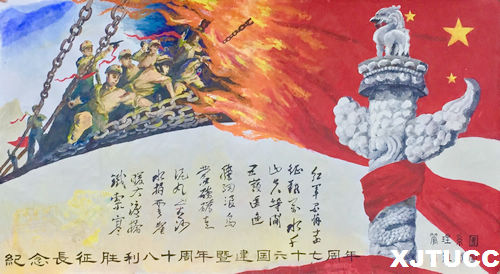 红军不怕远
征难万水千
山只等闲
五嶺逶迤
腾细浪乌
蒙磅礴走
泥丸金沙
水拍云崖
暖大渡橋
鐵索寒
紀念長征胜利八十周年暨建国六十七周年
XJTUCC